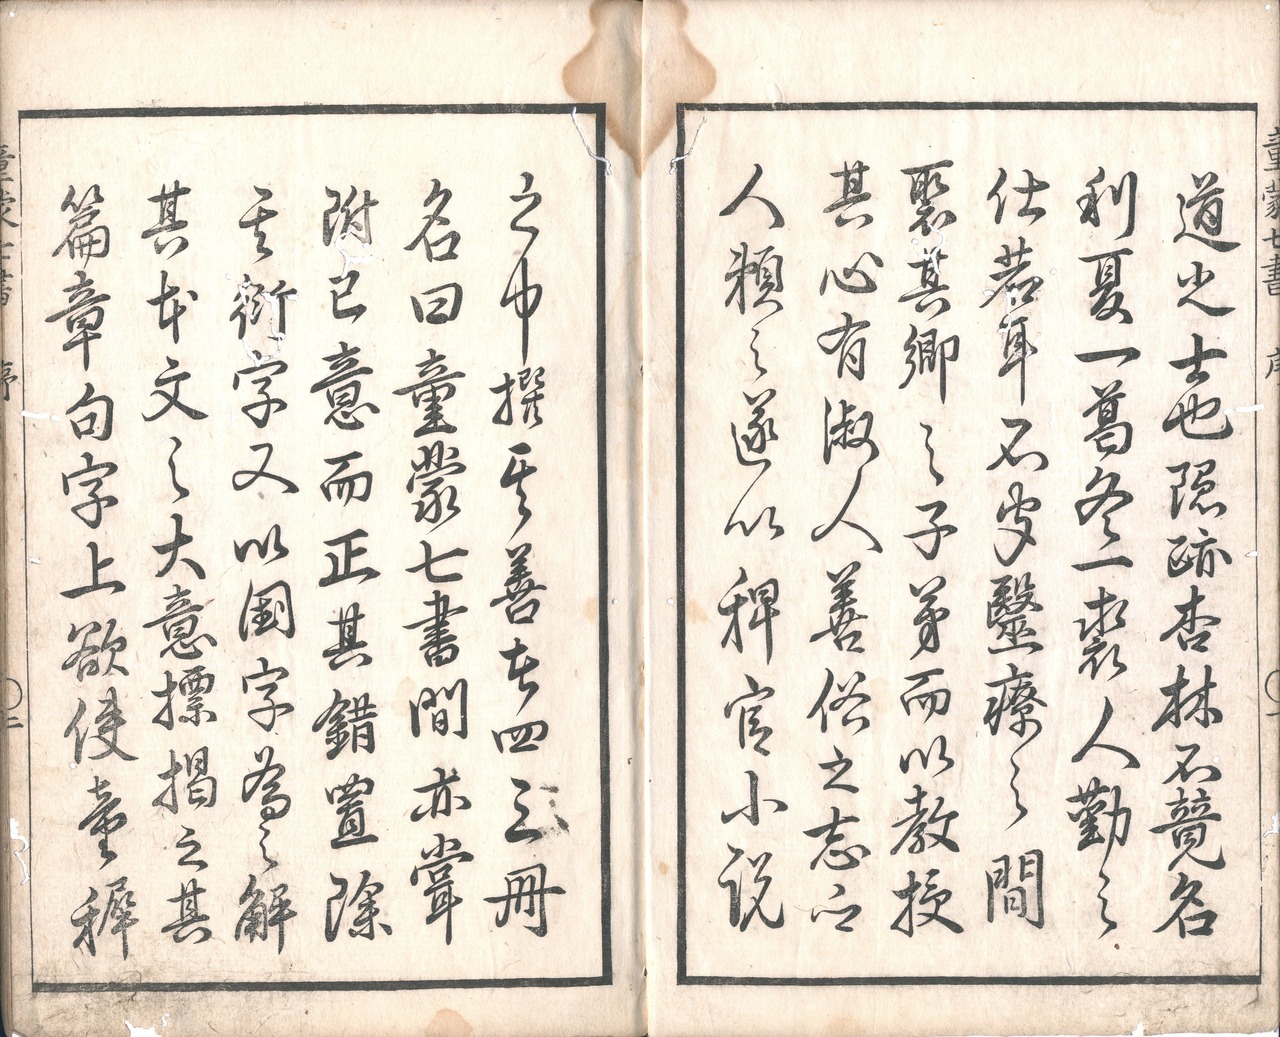 童蒙七書 序 一
道光士也隠跡杏林不競名
利夏一葛冬一裘人勤之
仕若耳不 醫療之間
聚其郷之子弟而以教授
其心有淑人善俗之志
人頼之遂以稗官小説
之中撰其善者四三冊
名曰童蒙七書間亦嘗
附己意而正其錯置除
其衍字又以国字為之解
其本文之大意摽掲之其
篇章句字上欲使童穉
童蒙七書 序 二